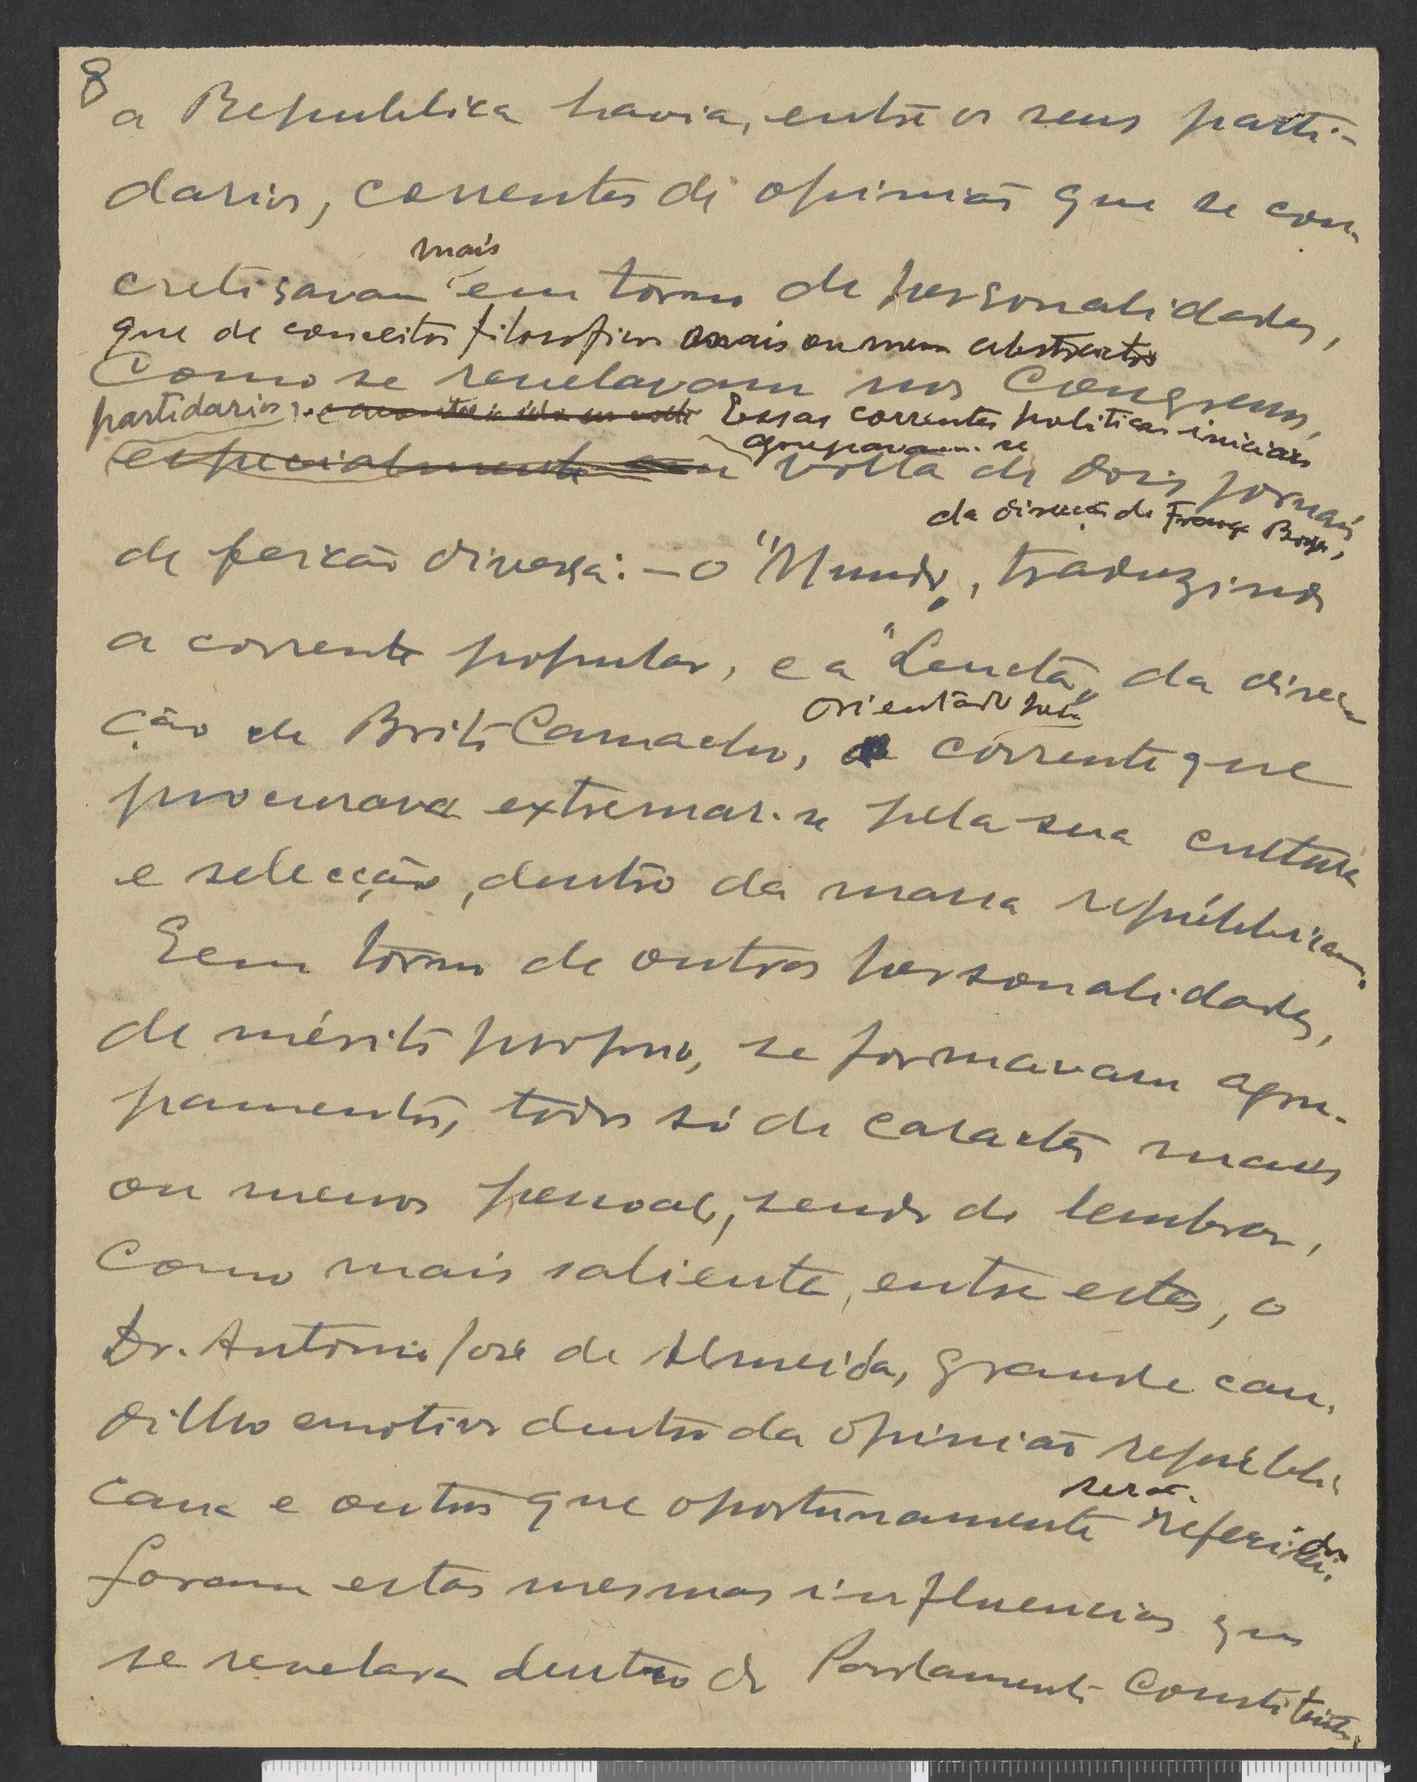 8
a Republica havia, entre os seus parti-
darios, correntes de opinião que se con-
mais
cretisavam em torno de personalidades,
que de conceitos filosoficos mais ou menos abstractos
Como se revelavam nos Congressos,
partidarios. Essas correntes politicas iniciais
agrupavam-se
especialmente em volta de dois jornais
da direcção de França Borges,
de feição diversa: - o "Mundo", traduzindo
a corrente popular, e a "Lucta", da direc-
orientado pela
ção de Brito Camacho, corrente que
procurava extremar-se pela sua cultura
e selecção, dentro da massa republicana.
E em torno de outras personalidades,
de mérito proprio, se formavam agru-
pamentos, todos só de caracter mais
ou menos pessoal, sendo de lembrar,
como mais saliente, entre estes, o
Dr. Antonio José de Almeida, grande cau-
dilho emotivo dentro da opinião republi-
serão
cana e outros que oportunamente referidos.
Foram estas mesmas influencias que
se revelaram dentro do Parlamento Constituinte.